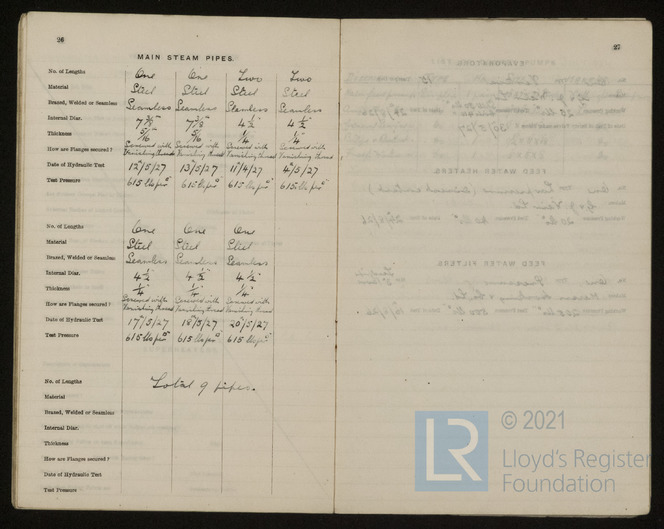 26
MAIN STEAM PIPES.
No. of Lengths One One Two Two
Material Steel Steel Steel Steel
Brazed, Welded or Seamless Seamless Seamless Seamless Seamless
Internal Diar. 4 ½" 4 ½"
Thickness 5/16 5/16 ¼ ¼
How are Flanges secured? Screwed with Screwed with Screwed with Screwed with
Vanishing thread Vanishing thread Vanishing thread Vanishing thread
Date of Hydraulic Test 12/5/27 13/5/27 11/4/27 4/5/27
Test Pressure 615 lbs 615 lbs 615 lbs 615 lbs
No. of Lengths One One One
Material Steel Steel Steel
Brazed, Welded or Seamless Seamless Seamless Seamless
Internal Diar. 4 ½" 4 ½" 4 ½"
Thickness ¼" ¼" ¼"
How are Flanges secured? Screwed with Screwed with Screwed with
Vanishing thread Vanishing thread Vanishing thread
Date of Hydraulic Test 17/5/27 18/5/27 20/5/27
Test Pressure 615 lbs 615 lbs 615 lbs
No. of Lengths Total 9 pipes.
Material
Brazed, Welded or Seamless
Internal Diar.
Thickness
How are Flanges secured?
Date of Hydraulic Test
Test Pressure
27
LR
© 2021
Lloyd's Register
Foundation